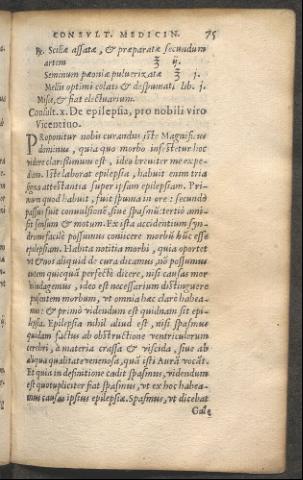 CONSVLT. MEDICIN. 75
℞. Scillæ assatæ, & præparatæ secundum
artem ℥ ij.
Seminum pæoniæ pulverizatæ ℥ j.
Mellis optimi colati & despumati, lib. j.
Misce, & fiat electuarium.
Consult. x. De epilepsia, pro nobili viro
Vicentino.
PRoponitur nobis curandus iste Magnifi-
dominus, quia quo morbo infestetur hoc
videre clarissimum est, ideo breviter me expe-
dam. Iste laborat epilepsia, habuit enim tria
signa attestantia super ipsam epilepsiam. Pri-
mum quod habuit, fuit spuma in ore: secundo
passus fuit convulsionē, sive spasmū: tertiò ami-
sit sensum & motum. Ex ista accidentium syn-
drome facilè possumus conijcere morbū hūc esse
epilepsiam. Habita notitia morbi, quia oportet
vt & nos aliquid de cura dicamus, nō possumus
autem quicquā perfectè dicere, nisi causas mor
bi indagemus, ideo est necessarium distinguere
præsentem morbum, vt omnia hæc clarè habea-
mus: & primò videndum est quidnam sit epi-
lepsia. Epilepsia nihil aliud est, nisi spasmus
quidam factus ab obstructione ventriculorum
cerebri, à materia crassa & viscida, sive ab
aliqua qualitate venenosa, quā isti Aurā vocāt.
Et quia in definitione cadit spasmus, videndum
est quotupliciter fiat spasmus, vt ex hoc habea-
mus causas ipsius epilepsiæ. Spasmus, vt dicebat
Gale